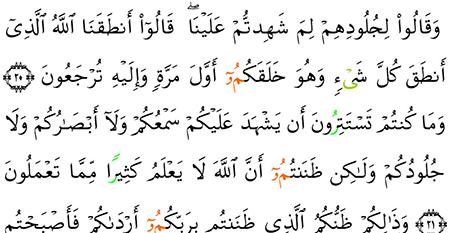 وَقَالُواْ لِجُلُودِهِمْ لِمَ شَهِدتُّمْ عَلَيْنَاۖ قَالُوٓاْ أَنطَقَنَا ٱللَّهُ ٱلَّذِىٓ
أَنطَقَ كُلَّ شَىْءٖ وَهُوَ خَلَقَكُمُۥٓ أَوَّلَ مَرَّةٖ وَإِلَيْهِ تُرْجَعُونَ ٢٠
وَمَا كُنتُمْ تَسْتَتِرُونَ أَن يَشْهَدَ عَلَيْكُمْ سَمْعُكُمْ وَلَآ أَبْصَٰرُكُمْ وَلَا
جُلُودُكُمْ وَلَٰكِن ظَنَنتُمُۥٓ أَنَّ ٱللَّهَ لَا يَعْلَمُ كَثِيرٗا مِّمَّا تَعْمَلُونَ
٢١ وَذَٰلِكُمْ ظَنُّكُمُ ٱلَّذِى ظَنَنتُم بِرَبِّكُمُۥٓ أَرْدَىٰكُمْ فَأَصْبَحْتُم